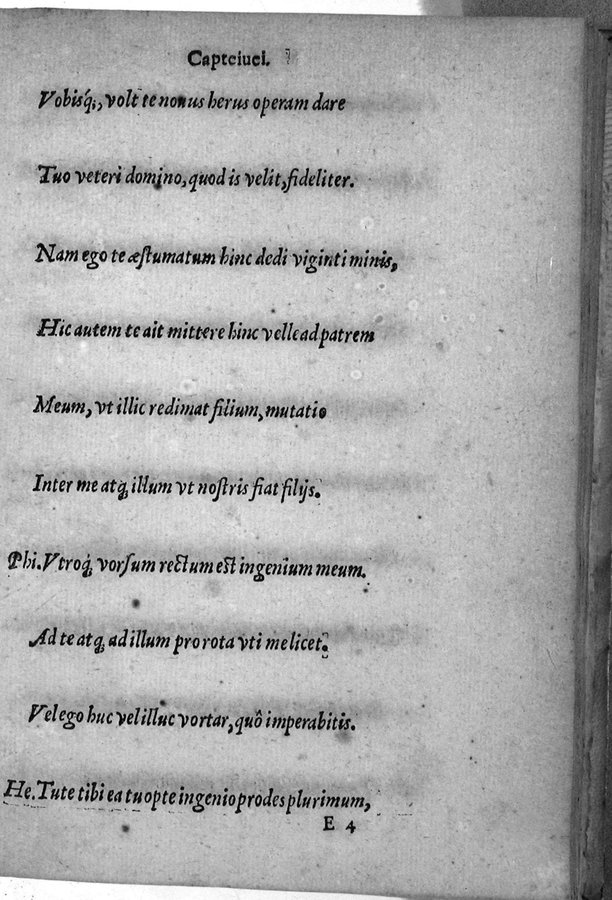 Capteiuei.
Vobisq́;, volt te nouus herus operam dare
Tuo veteri domino, quod is velit, fideliter.
Nam ego te æſtumatum hinc dedi viginti minis,
Hic autem te ait mittere hinc velle ad patrem
Meum, vt illic redimat filium, mutatio
Inter me atq́ illum vt noſtris fiat filijs.
Phi. Vtroq́ vorſum rectum est ingenium meum.
Ad te atq́ ad illum pro rota vti me licet.
Vel ego huc vel illuc vortar, quô imperabitis.
He. Tute tibi ea tuopte ingenio prodes plurimum,
E 4